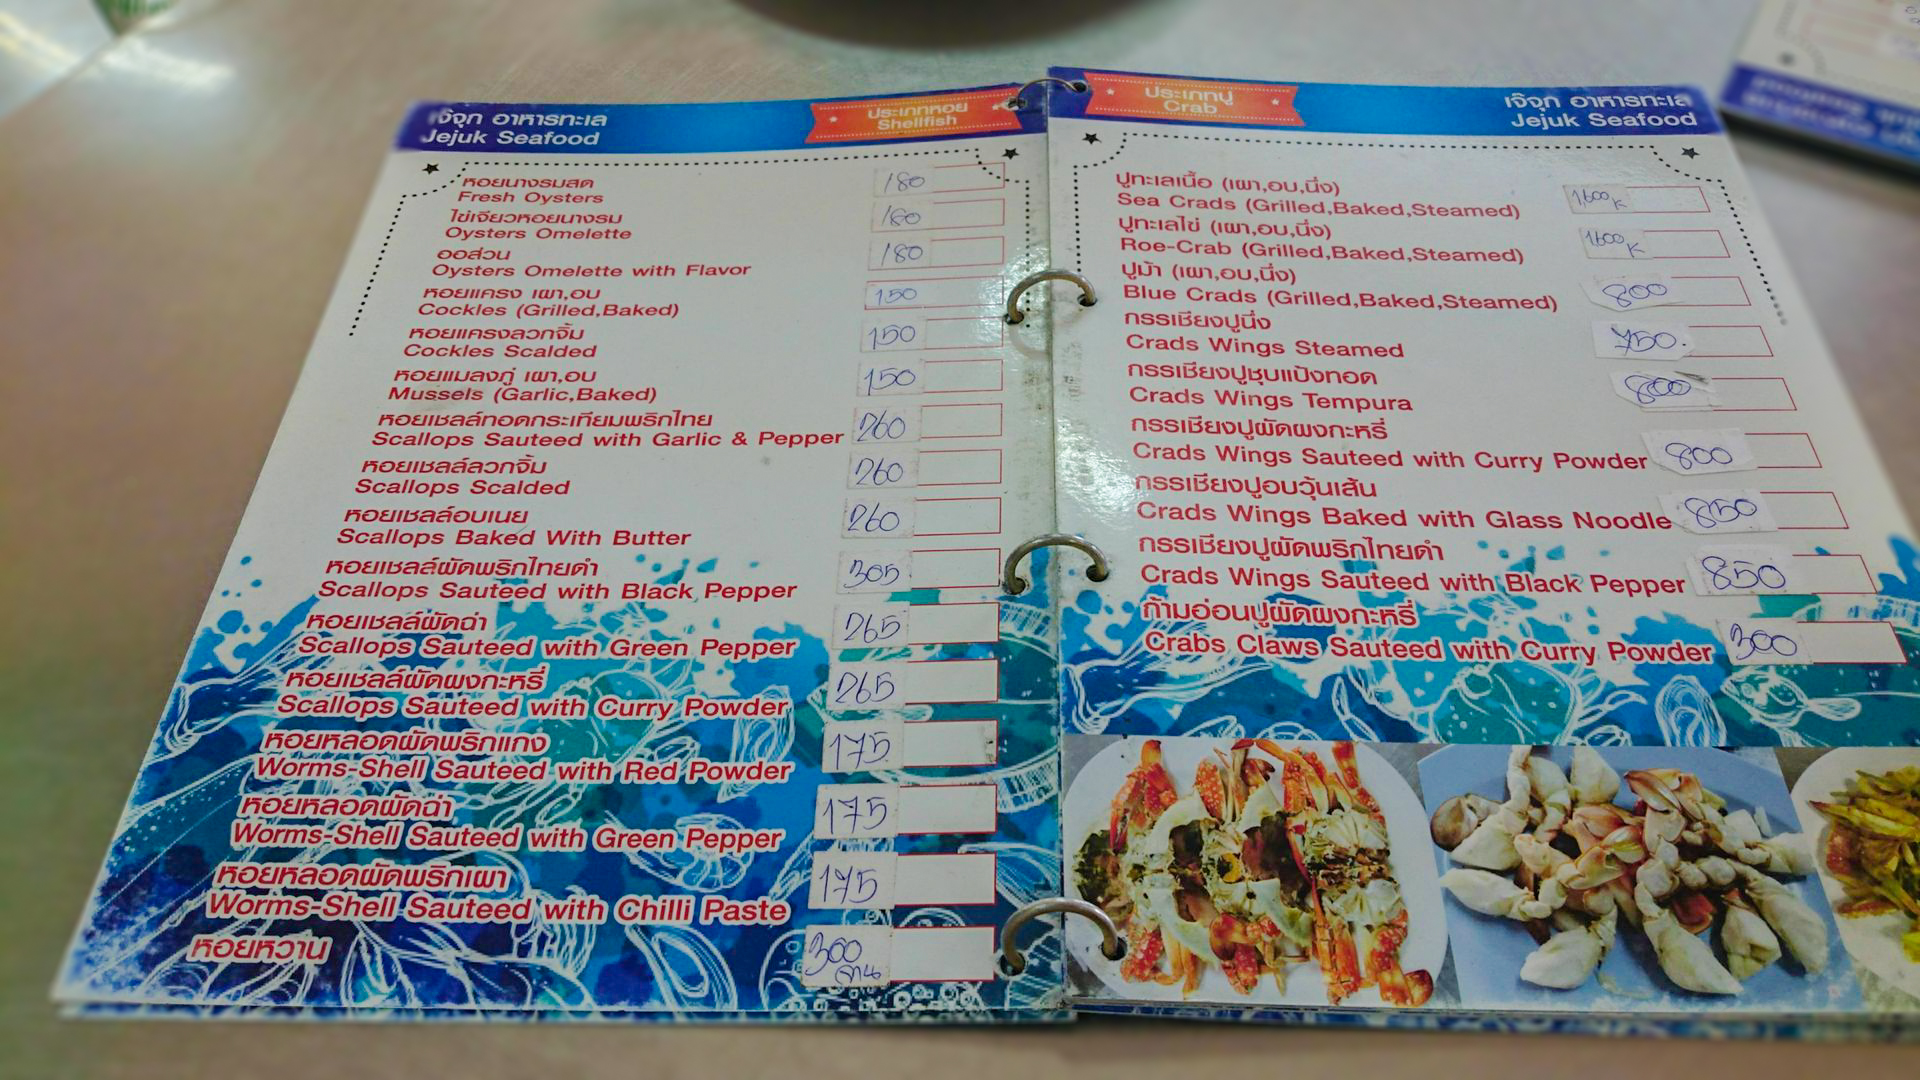 เจ๊จุก อาหารทะเล
Jejuk Seafood
ประเภทหอย
Shellfish
หอยนางรมสด
Fresh Oysters
180
ไข่เจียวหอยนางรม
Oysters Omelette
180
ออส่วน
Oysters Omelette with Flavor
180
หอยแครง เผา,อบ
Cockles (Grilled,Baked)
150
หอยแครงลวกจิ้ม
Cockles Scalded
150
หอยแมลงภู่ เผา,อบ
Mussels (Garlic,Baked)
150
หอยเชลล์ทอดกระเทียมพริกไทย
Scallops Sauteed with Garlic & Pepper
260
หอยเชลล์ลวกจิ้ม
Scallops Scalded
260
หอยเชลล์อบเนย
Scallops Baked With Butter
260
หอยเชลล์ผัดพริกไทยดำ
Scallops Sauteed with Black Pepper
305
หอยเชลล์ผัดฉ่า
Scallops Sauteed with Green Pepper
265
หอยเชลล์ผัดผงกะหรี่
Scallops Sauteed with Curry Powder
265
หอยหลอดผัดพริกแกง
Worms-Shell Sauteed with Red Powder
175
หอยหลอดผัดฉ่า
Worms-Shell Sauteed with Green Pepper
175
หอยหลอดผัดพริกเผา
Worms-Shell Sauteed with Chilli Paste
175
หอยหวาน
300
จาน
ประเภทปู
Crab
เจ๊จุก อาหารทะเล
Jejuk Seafood
ปูทะเลเนื้อ (เผา,อบ,นึ่ง)
Sea Crads (Grilled,Baked,Steamed)
1,600 K
ปูทะเลไข่ (เผา,อบ,นึ่ง)
Roe-Crab (Grilled,Baked,Steamed)
1600 K
ปูม้า (เผา,อบ,นึ่ง)
Blue Crads (Grilled,Baked,Steamed)
800
กรรเชียงปูนึ่ง
Crads Wings Steamed
750.
กรรเชียงปูชุบแป้งทอด
Crads Wings Tempura
800
กรรเชียงปูผัดผงกะหรี่
Crads Wings Sauteed with Curry Powder
800
กรรเชียงปูอบวุ้นเส้น
Crads Wings Baked with Glass Noodle
850
กรรเชียงปูผัดพริกไทยดำ
Crads Wings Sauteed with Black Pepper
850
ก้ามอ่อนปูผัดผงกะหรี่
Crabs Claws Sauteed with Curry Powder
300